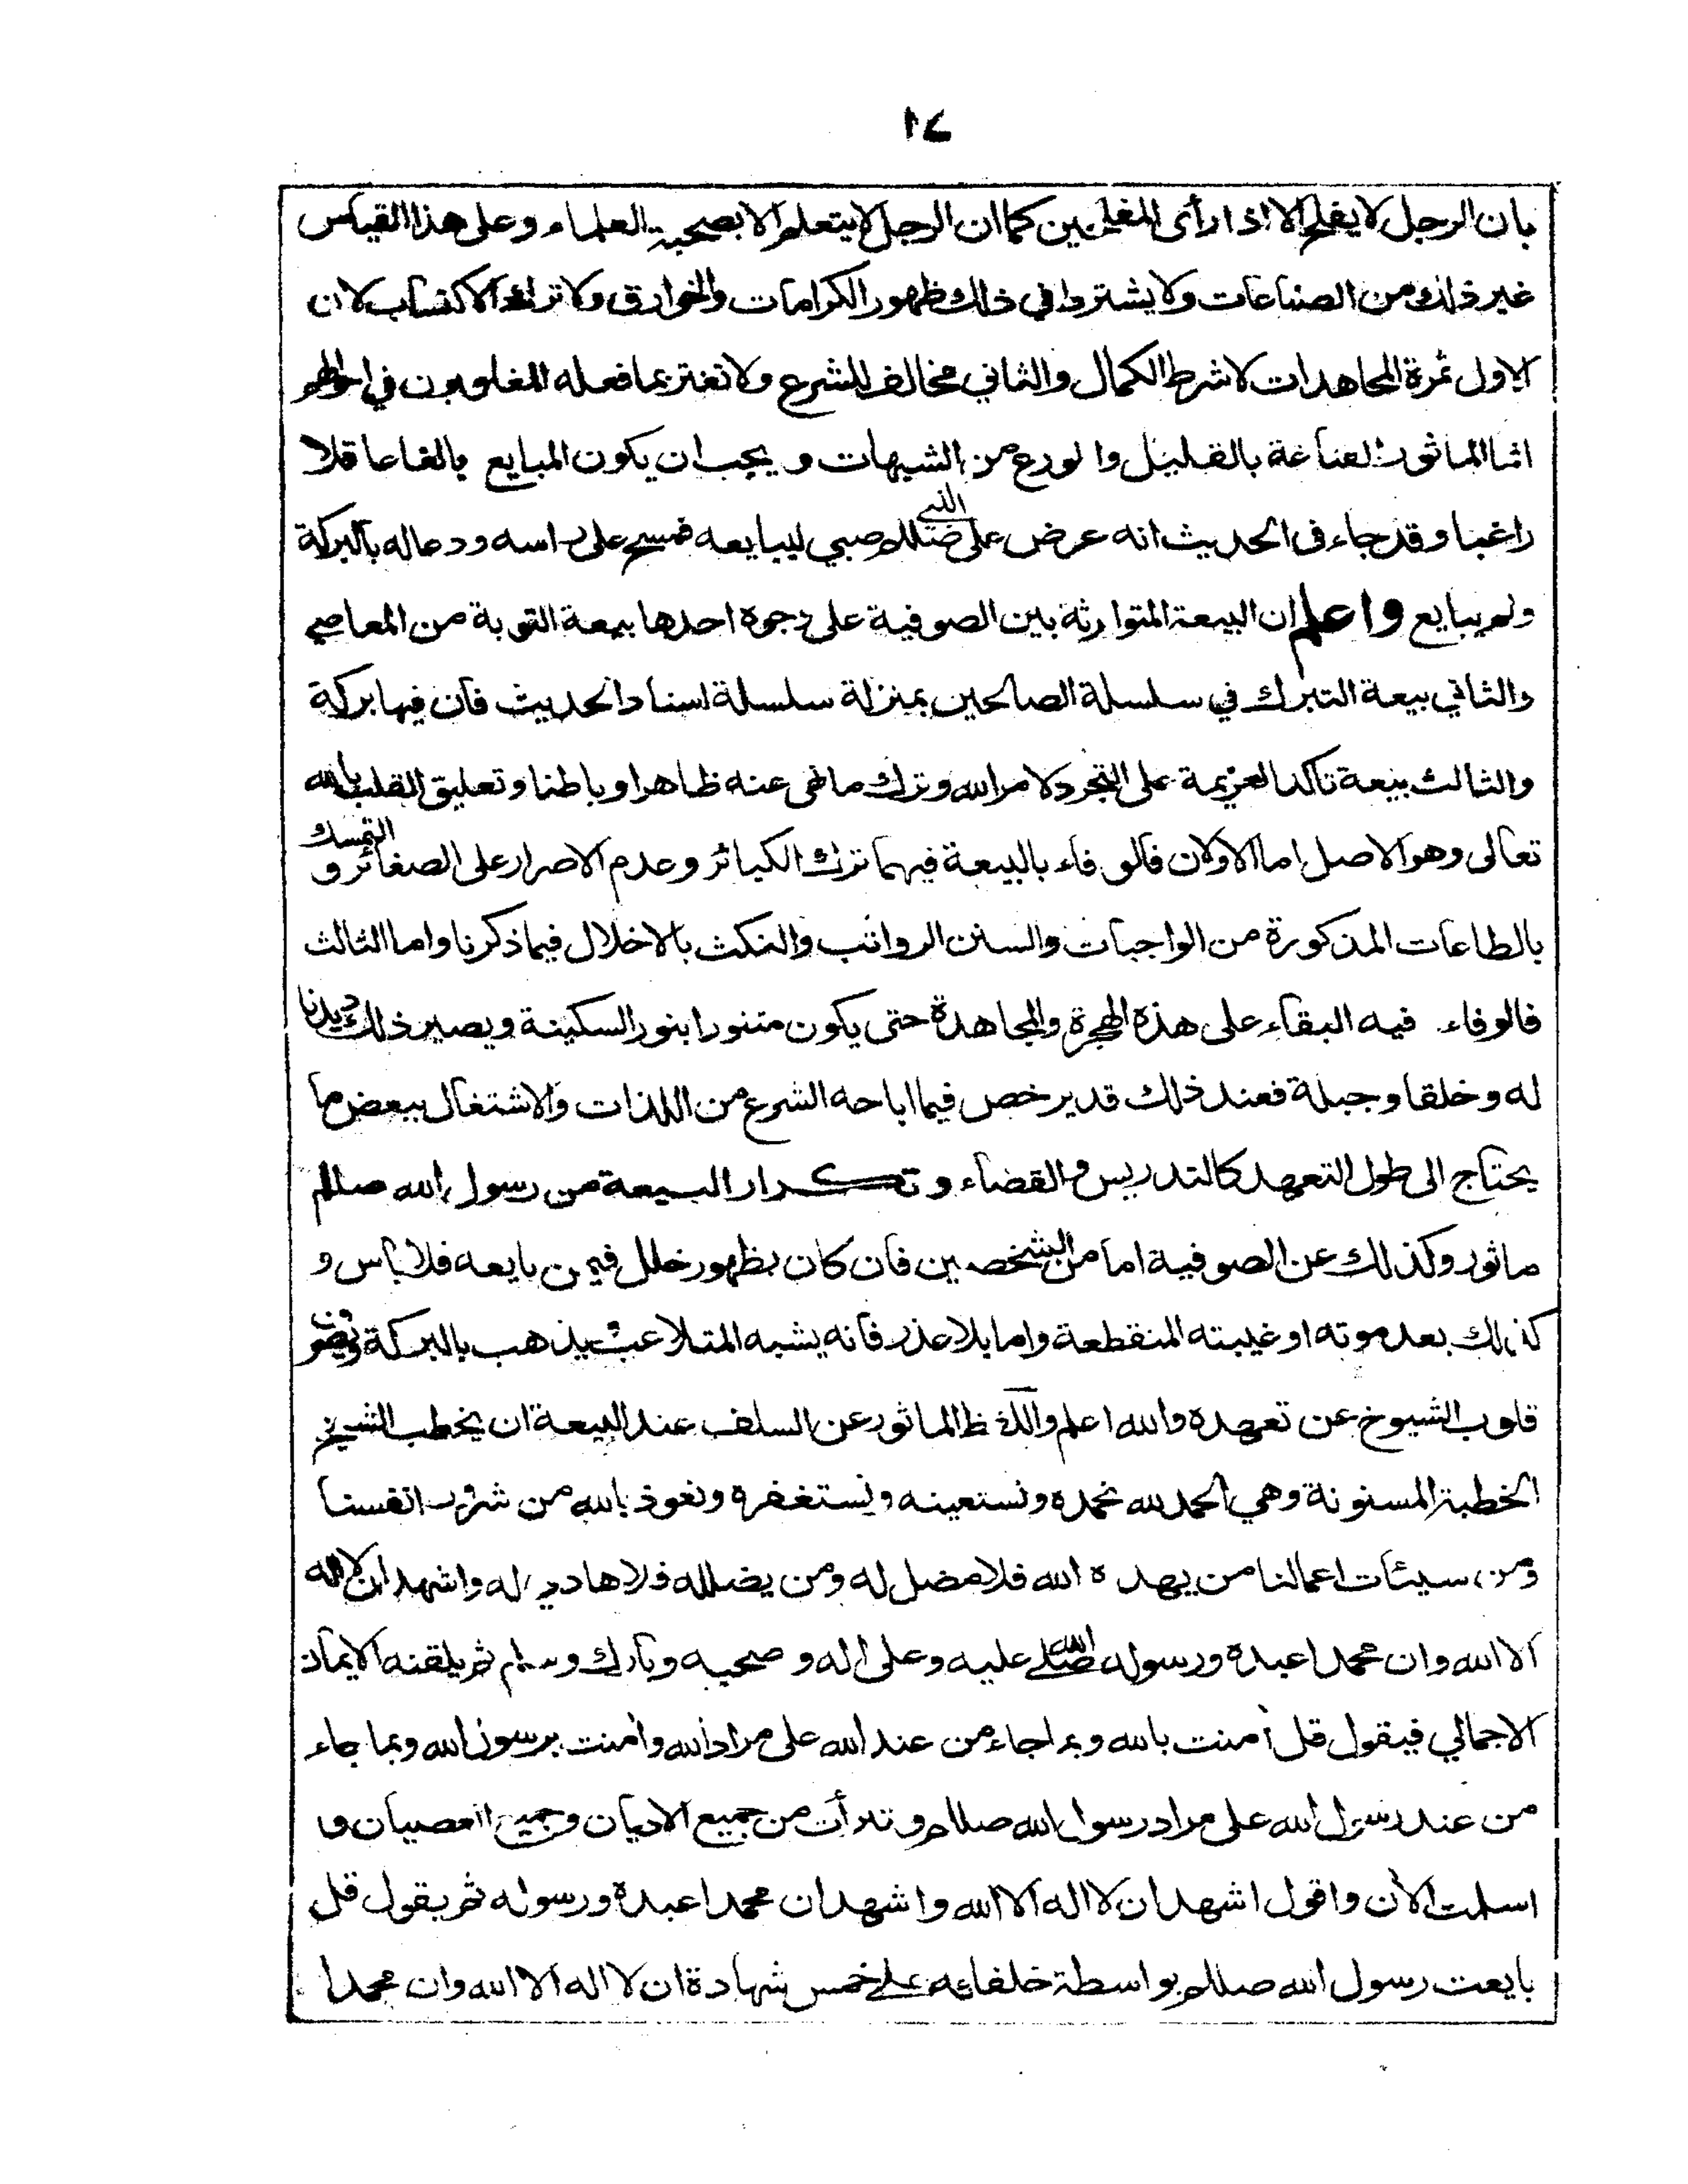 ١٤
بان الرجل لا يفلح الا اذا رأى المفلحين كما ان الرجل لا يتعلم الا بصحبة العلماء وعلى هذا القياس
غير ذلك من الصناعات ولا يشترط في ذلك ظهور الكرامات والخوارق ولا ترك الاكتساب لان
الاول ثمرة المجاهدات لا شرط الكمال والثاني مخالف للشرع ولا تغتر بما فعله المغلوبون في احوالهم
انما الماثور القناعة بالقليل والورع من الشبهات و يجب ان يكون المبايع بالغا عاقلا
راغبا وقد جاء فى الحديث انه عرض على النبي صللم صبي ليبايعه فمسح على راسه ودعا له بالبركة
ولم يبايع واعلم ان البيعة المتوارثة بين الصوفية على وجوه احدها بيعة التوبة من المعاصي
والثاني بيعة التبرك في سلسلة الصالحين بمنزلة سلسلة اسناد الحديث فان فيها بركة
والثالث بيعة تاكد العزيمة على التجرد لامر الله وترك ما نهى عنه ظاهرا وباطنا وتعليق القلب بالله
تعالى وهو الاصل اما الاولان فالوفاء بالبيعة فيهما ترك الكبائر وعدم الاصرار على الصغائر و التمسك
بالطاعات المذكورة من الواجبات والسنن الرواتب والنكث بالاخلال فيما ذكرنا واما الثالث
فالوفاء فيه البقاء على هذه الهجرة والمجاهدة حتى يكون متنورا بنور السكينة ويصير ذلك ديدنا
له وخلقا وجبلة فعند ذلك قد يرخص فيما اباحه الشرع من اللذات والاشتغال ببعض ما
يحتاج الى طول التعهد كالتدريس والقضاء وتكرار البيعة من رسول الله صللم
ماثور وكذلك عن الصوفية اما من الشخصين فان كان بظهور خلل فيمن بايعه فلا باس و
كذلك بعد موته او غيبته المنقطعة واما بلا عذر فانه يشبه المتلاعب ويذهب بالبركة ويصرف
قلوب الشيوخ عن تعهده والله اعلم واللفظ الماثور عن السلف عند البيعة ان يخطب الشيخ
الخطبة المسنونة وهي الحمد لله نحمده ونستعينه ونستغفره ونعوذ بالله من شرور انفسنا
ومن سيئات اعمالنا من يهده الله فلا مضل له ومن يضلله فلا هادي له واشهد ان لا اله
الا الله وان محمدا عبده ورسوله صلى الله عليه وعلى اله و صحبه وبارك وسلم ثم يلقنه الايمان
الاجمالي فيقول قل أمنت بالله وبما جاء من عند الله على مراد الله وأمنت برسول الله وبما جاء
من عند رسول الله على مراد رسول الله صللم وتبرأت من جميع الاديان وجميع العصيان و
اسلمت الأن واقول اشهد ان لا اله الا الله واشهد ان محمدا عبده ورسوله ثم يقول قل
بايعت رسول الله صللم بواسطة خلفائه على خمس شهادة ان لا اله الا الله وان محمدا